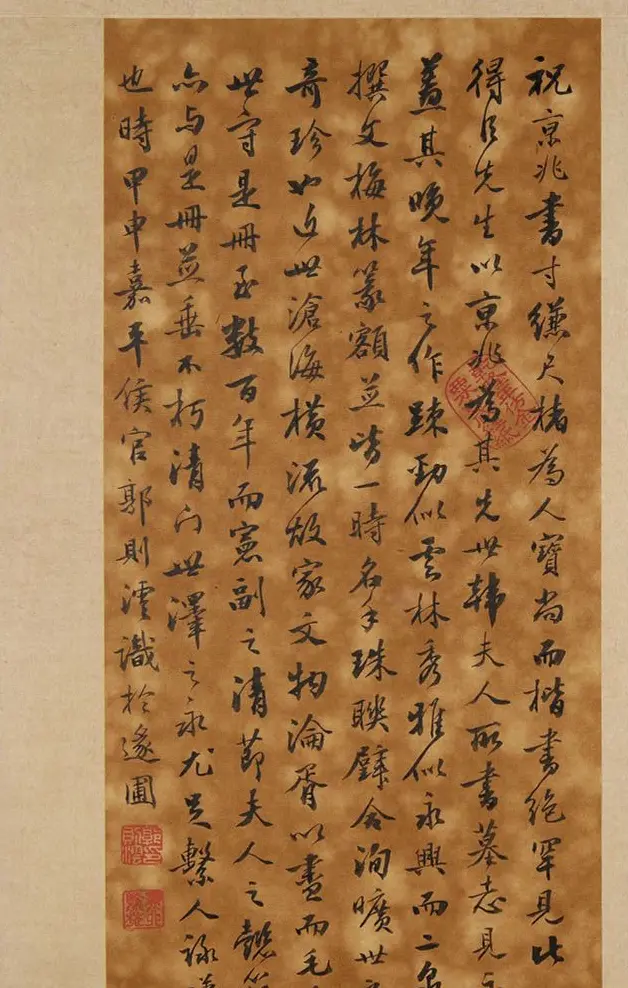 祝京兆書寸縑尺楮為人寶尚而楷書絕罕見此
得臣先生以京兆為其先世韓夫人所書墓志見
蓋其晚年之作疎勁似雲林秀雅似永興而二泉
撰文梅林篆額並皆一時名手珠聯璧合洵曠世
奇珍也近世滄海橫流故家文物淪胥以盡而毛
世守是冊至數百年而憲副之清節夫人之懿
亦与是冊並垂不朽清門世澤之永尤足繫人詠
也時甲申嘉平侯官郭則澐識於遂圃